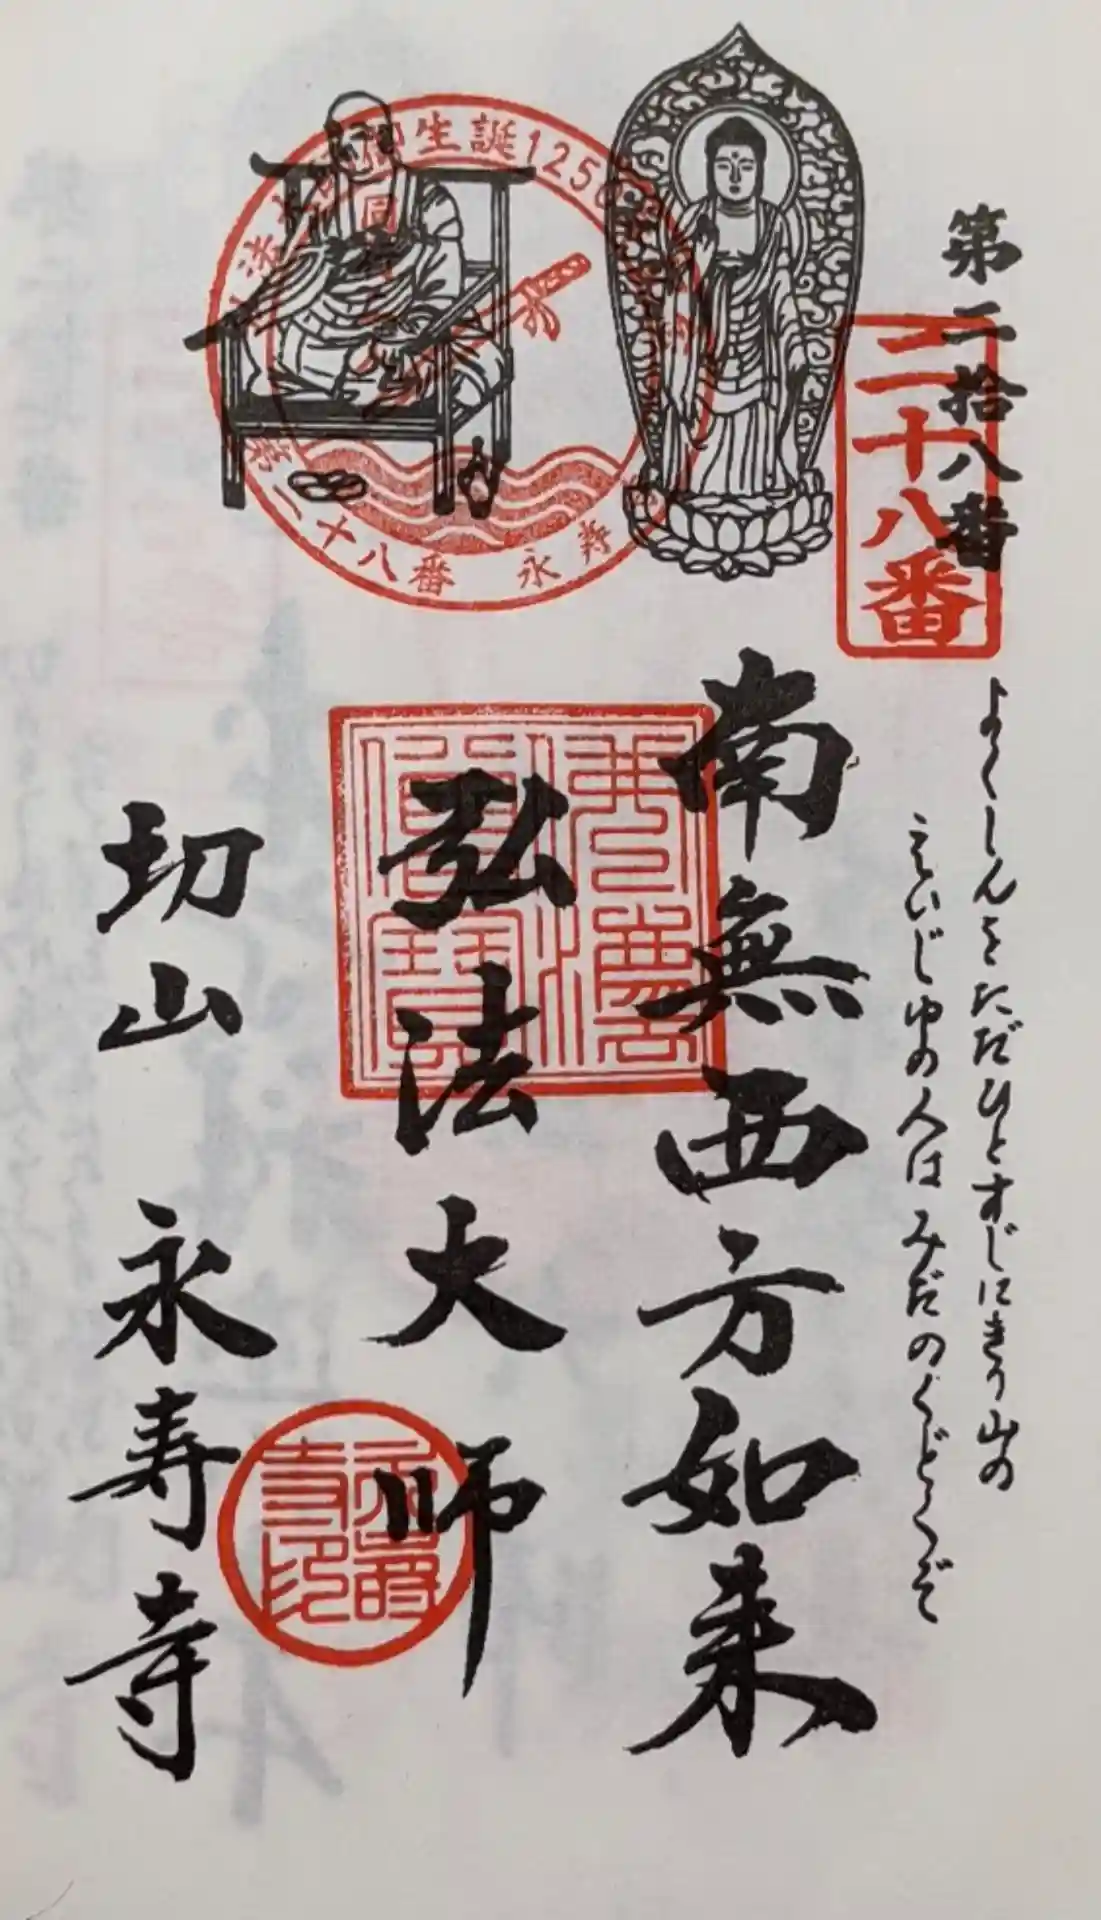 第二拾八番
二十八番
よくしんをただひとすじにきり山の
えいじゆの人はみだのくどくぞ
南無西方如来
弘法大師
切山 永寿寺
生誕125
第二十八番 永寿
同行
佛法僧寶
永壽寺印